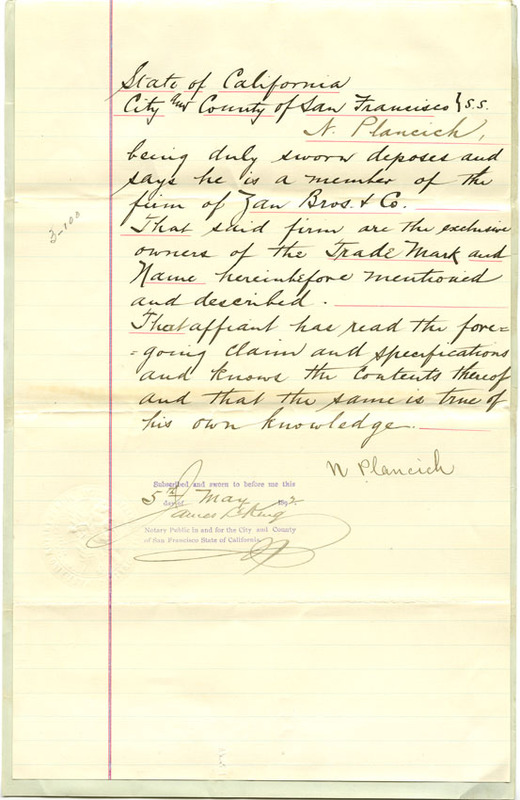 State of California
City and County of San Francisco } S.S.
N. Plancich,
being duly sworn deposes and
says he is a member of the
firm of Zan Bros. & Co.
That said firm are the exclusive
owners of the Trade Mark and
Name hereinbefore mentioned
and described.
That affiant has read the fore=
=going claim and specifications
and knows the contents thereof
and that the same is true of
his own knowledge.
3-100
N Plancich
Subscribed and sworn to before me this
5th day of May
James L. King
Notary Public in and for the City and County
of San Francisco State of California.